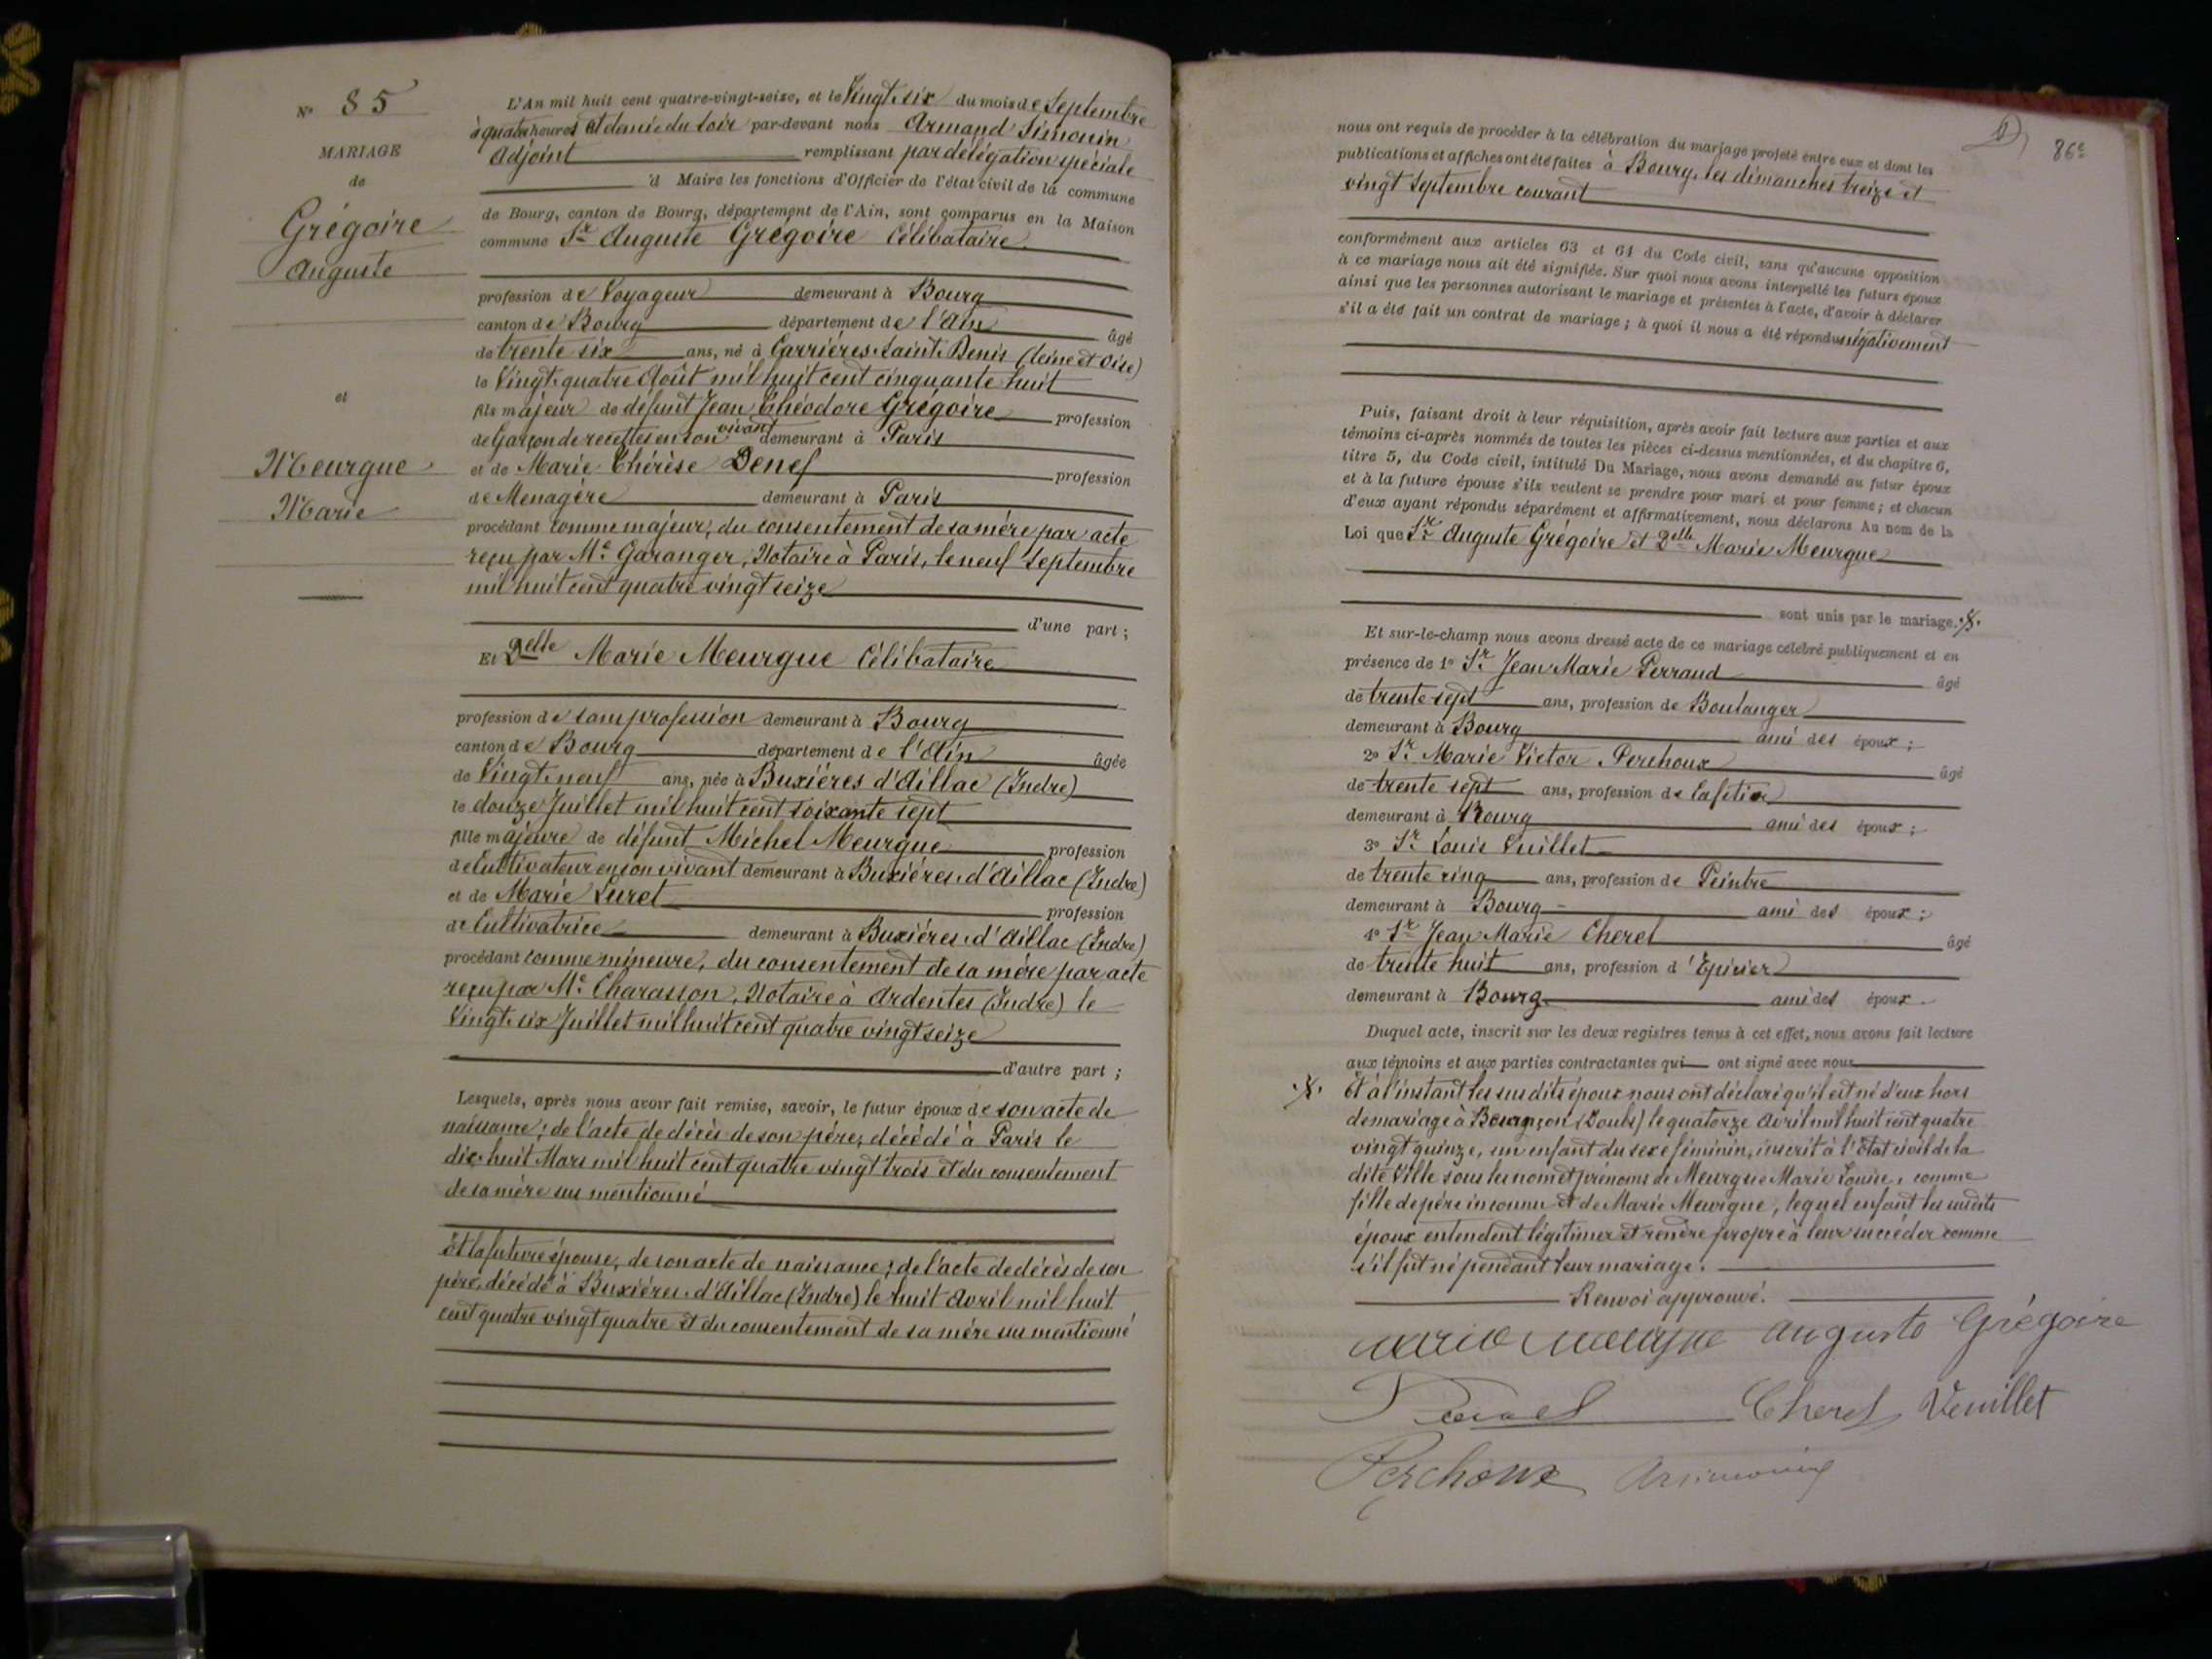 N° 85
MARIAGE
de
Grégoire
Auguste
et
Meurgue
Marie
L'An mil huit cent quatre-vingt-seize, et le Vingt-six du mois de Septembre
à quatre heures et demie du soir par-devant nous Armand Simonin
Adjoint remplissant par délégation spéciale
d Maire les fonctions d'Officier de l'état civil de la commune
de Bourg, canton de Bourg, département de l'Ain, sont comparus en la Maison
commune Sr Auguste Grégoire Célibataire
profession de Voyageur demeurant à Bourg
canton de Bourg département de l'Ain âgé
de trente six ans, né à Carrières-Saint-Denis (Seine et Oise)
le Vingt-quatre Août mil huit cent cinquante huit
fils majeur de défunt Jean Théodore Grégoire profession
de Garçon de recettes en son vivant demeurant à Paris
et de Marie Thérèse Denef profession
de Menagère demeurant à Paris
procédant comme majeur, du consentement de sa mère par acte
reçu par Me Garanger, Notaire à Paris, le neuf Septembre
mil huit cent quatre vingt seize
d'une part;
Et Delle Marie Meurgue Célibataire
profession de sans profession demeurant à Bourg
canton de Bourg département de l'Ain âgée
de Vingt-neuf ans, née à Buxières d'Aillac (Indre)
le douze Juillet mil huit cent soixante sept
fille majeure de défunt Michel Meurgue profession
de Cultivateur en son vivant demeurant à Buxières d'Aillac (Indre)
et de Marie Luret profession
de Cultivatrice demeurant à Buxières d'Aillac (Indre)
procédant comme mineure, du consentement de sa mère par acte
reçu par Me Charasson, Notaire à Ardentes (Indre) le
Vingt-six Juillet mil huit cent quatre vingt seize
d'autre part;
Lesquels, après nous avoir fait remise, savoir, le futur époux de son acte de
naissance; de l'acte de décès de son père, décédé à Paris le
dix-huit Mars mil huit cent quatre vingt trois et du consentement
de sa mère sus mentionné
Et la future épouse, de son acte de naissance; de l'acte de décès de son
père, décédé à Buxières-d'Aillac (Indre) le huit Avril mil huit
cent quatre vingt quatre et du consentement de sa mère sus mentionné
86e
nous ont requis de procéder à la célébration du mariage projeté entre eux et dont les
publications et affiches ont été faites à Bourg, les dimanches treize et
vingt Septembre courant
conformément aux articles 63 et 64 du Code civil, sans qu'aucune opposition
à ce mariage nous ait été signifiée. Sur quoi nous avons interpellé les futurs époux
ainsi que les personnes autorisant le mariage et présentes à l'acte, d'avoir à déclarer
s'il a été fait un contrat de mariage; à quoi il nous a été répondu négativement
Puis, faisant droit à leur réquisition, après avoir fait lecture aux parties et aux
témoins ci-après nommés de toutes les pièces ci-dessus mentionnées, et du chapitre 6,
titre 5, du Code civil, intitulé Du Mariage, nous avons demandé au futur époux
et à la future épouse s'ils veulent se prendre pour mari et pour femme; et chacun
d'eux ayant répondu séparément et affirmativement, nous déclarons Au nom de la
Loi que Sr Auguste Grégoire et Delle Marie Meurgue
sont unis par le mariage.
Et sur-le-champ nous avons dressé acte de ce mariage célébré publiquement et en
présence de 1° Sr Jean Marie Perraud âgé
de trente sept ans, profession de Boulanger
demeurant à Bourg ami des époux;
2° Sr Marie Victor Perchoux âgé
de trente sept ans, profession de Cafetier
demeurant à Bourg ami des époux;
3° Sr Louis Vuillet
de trente cinq ans, profession de Peintre
demeurant à Bourg ami des époux;
4° Sr Jean Marie Cherel âgé
de trente huit ans, profession d'Epicier
demeurant à Bourg ami des époux.
Duquel acte, inscrit sur les deux registres tenus à cet effet, nous avons fait lecture
aux témoins et aux parties contractantes qui ont signé avec nous
Et à l'instant les sus dits époux nous ont déclaré qu'il est né d'eux hors
de mariage à Besançon (Doubs) le quatorze Avril mil huit cent quatre
vingt quinze, un enfant du sexe féminin, inscrit à l'Etat civil de la
dite Ville sous les nom et prénoms de Meurgue Marie Louise, comme
fille de père inconnu et de Marie Meurgue, lequel enfant les susdits
époux entendent légitimer et rendre propre à leur succéder comme
s'il fût né pendant leur mariage.
Renvoi approuvé.
Marie Meurgue Auguste Grégoire
Cherel Veuillet
Perchoux Arsimonin